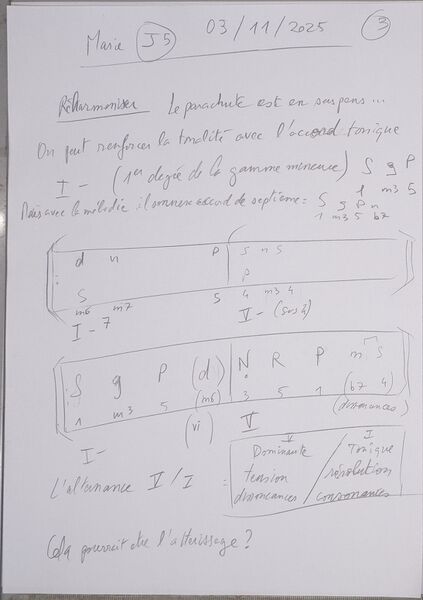 Marie J5 03/11/2025 3
Réharmoniser Le parachute est en suspens...
On peut renforcer la tonalité avec l'accord tonique
I - (1er degré de la gamme mineure) S g P
1 m3 5
Mais avec la mélodie il sonnera accord de septième = S g P n
1 m3 5 b7
d n P S n S
P
S 5 4 m3 4
m6 m7
I - 7 V - (sus 4)
S g P (d) N R P n S
1 m3 5 (m6) 3 5 1 (b7 4)
(dissonances)
I - (vi) V
L'alternance V / I =
V I
Dominante / Tonique
tension / résolution
dissonances / consonances
Cela pourrait être l'atterissage ?